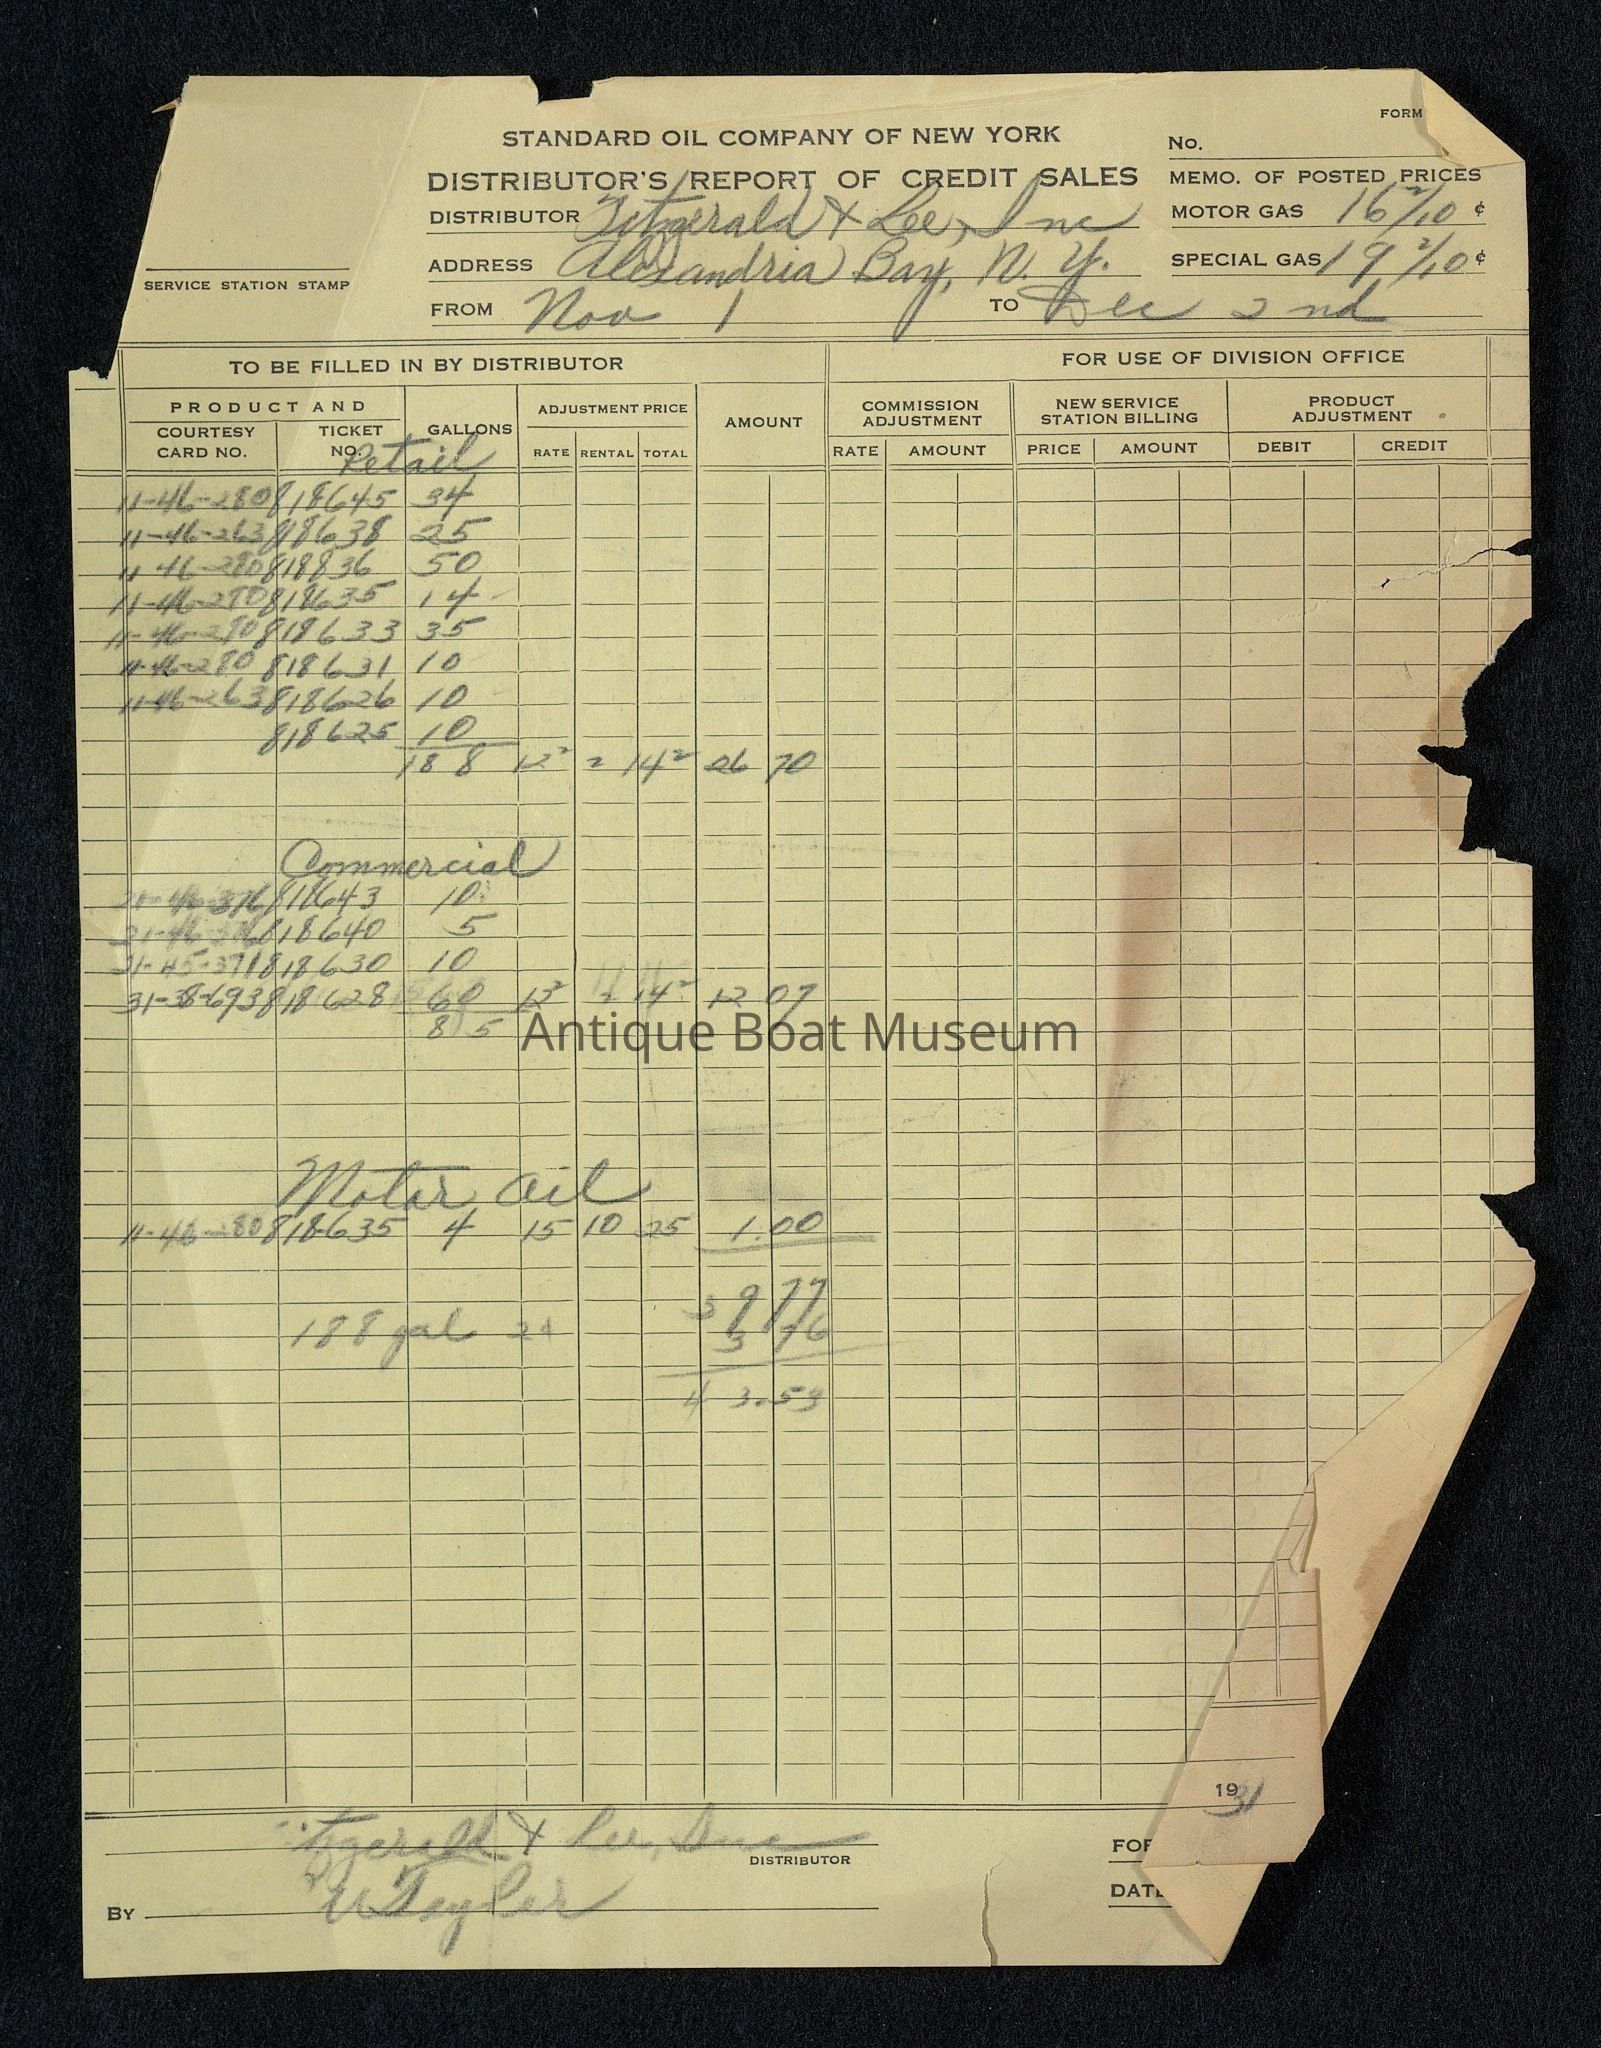 FORM
STANDARD OIL COMPANY OF NEW YORK
No.
DISTRIBUTOR'S REPORT OF CREDIT SALES
MEMO. OF POSTED PRICES
DISTRIBUTOR Fitzgerald & Lee, Inc
MOTOR GAS 16 2/10 ¢
ADDRESS Alexandria Bay, N. Y.
SPECIAL GAS 19 2/10 ¢
SERVICE STATION STAMP
FROM Nov 1 TO Dec 2nd
TO BE FILLED IN BY DISTRIBUTOR FOR USE OF DIVISION OFFICE
PRODUCT AND GALLONS ADJUSTMENT PRICE AMOUNT COMMISSION ADJUSTMENT NEW SERVICE STATION BILLING PRODUCT ADJUSTMENT
COURTESY CARD NO. TICKET NO. RATE RENTAL TOTAL RATE AMOUNT PRICE AMOUNT DEBIT CREDIT
Retail
11-46-280 818645 34
11-46-263 818638 25
11 46-280 818836 50
11-46-280 818635 14
11-46-280 818633 35
11-46-280 818631 10
11-46-263 818626 10
818625 10
188 12² 2 14² 26 70
Commercial
31-46-376 818643 10
31-46-376 818640 5
31-45-371 818630 10
31-38-693 818628 60 12² 2 14² 12 07
85
Antique Boat Museum
Motor Oil
11-46-280 818635 4 15 10 25 1.00
39 77
188 gal 2¢ 3 76
43.53
1931
Fitzgerald & Lee, Inc
DISTRIBUTOR
FOR
DATE
BY